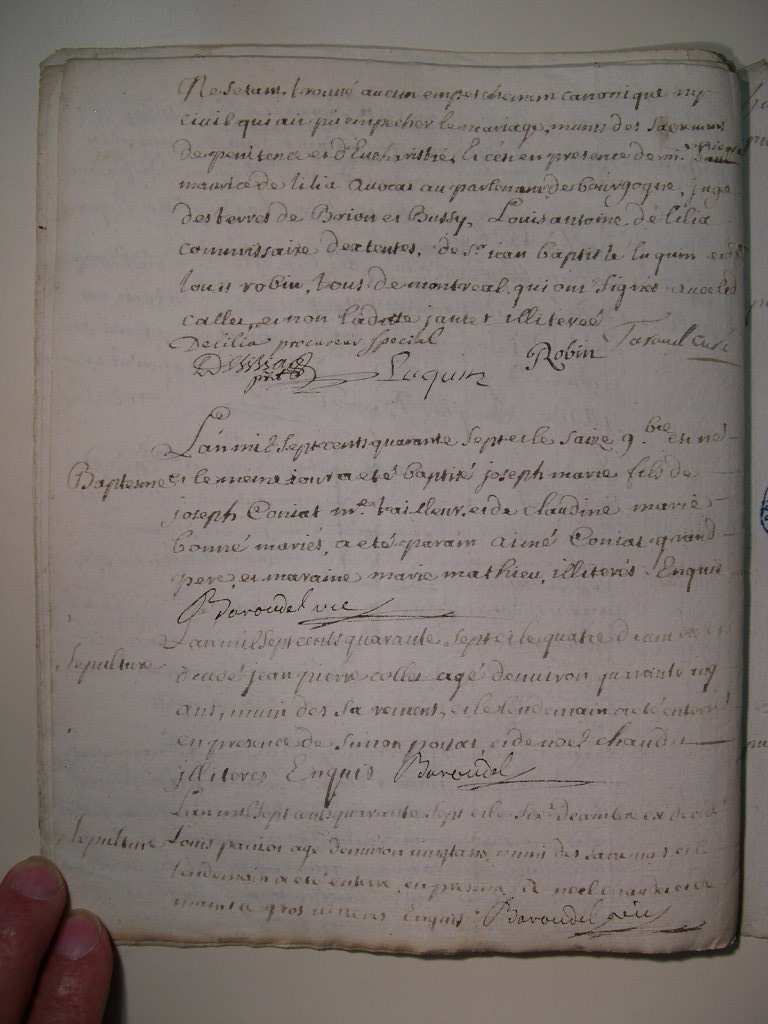 Ne setant trouvé aucun empeschement canonique ny
civil qui ait pû empecher le mariage, munis des sacremens
de penitence et d'Eucharistie, Et ce en presence de mr.
maurice de lilia avocat au parlement de bourgogne, juge
des terres de Brion et Bussy, Louis antoine de lilia
commissaire de, de Sr. jean baptiste luquin et
louis robin, tous de montreal, qui ont signés avec led
callet, et non ladite illiterée
Delilia procureur special
Luquin Robin curé
L'an mil sept cents quarante sept et le saize 9.bre est né
Baptesme et le meme jour a eté baptisé joseph marie fils de
joseph Coniat me. tailleur, et de claudine marie
bonne mariés, a eté parain aimé Coniat grand
pere, et maraine marie mathieu, illiterés Enquis
Baroudel vic
L'an mil sept cents quarante sept et le quatre
Sepulture jean pierre collet agé denviron quarante
ans, muni des sacremens, et le lendemain a eté enterré
en presence de Simon, et de noel chaudet
jlliteres Enquis Baroudel
L'an mil sept cents quarante sept et le six decembre est decedé
Sepulture Louis agé denviron vingt ans, muni des sacremens et le
lendemain a eté enterré, en presence de noel chaudet et de
gros illiteres Enquis Baroudel vic